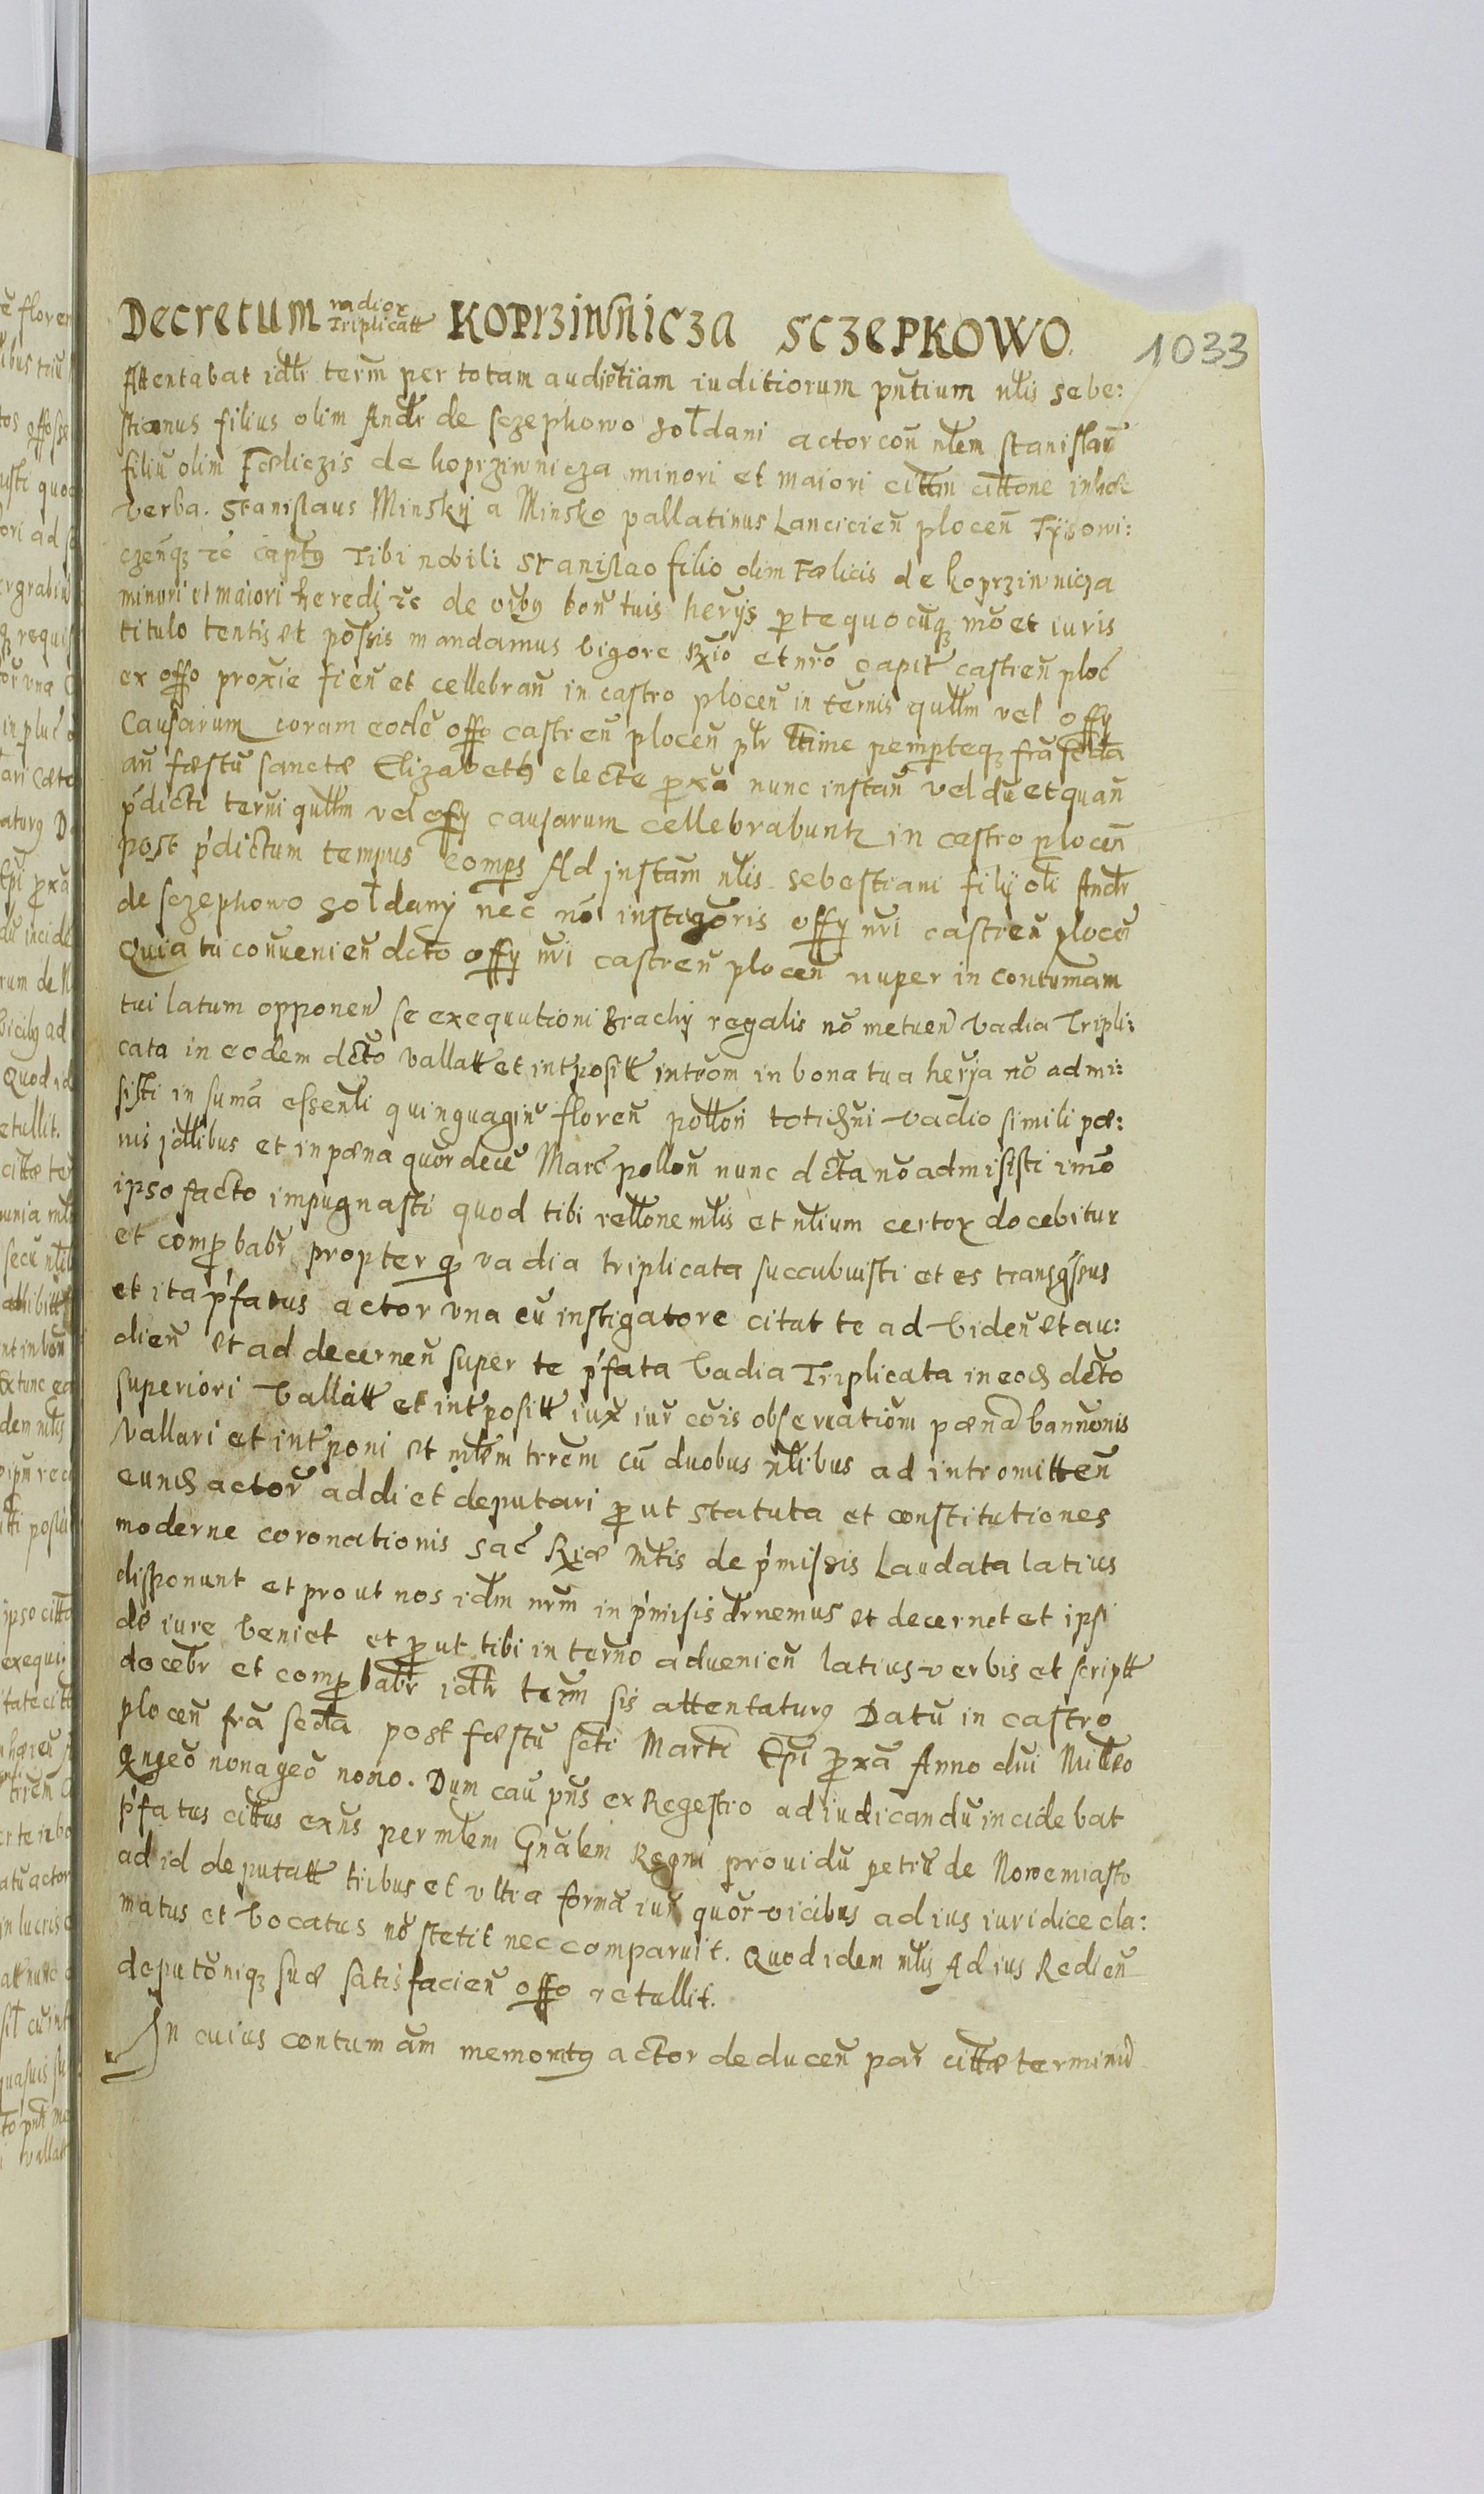 1033
Decretum vadior Triplicatt Koprziwnicza Sczepkowo.
Attentabat idlr term per totam audietiam iuditiorum pntium nlis Sebe:
stianus filius olim Andr de sczepkowo Soldani actor con nlem stanislau
filiu olim Fœliczis de koprziwnicza minori et maiori cittm cittone in hœc
verba. Stanislaus Minskÿ a Minsko pallatinus Lancicien plocen
czenqz rc captg Tibi nobili Stanislao filio olim Fœlicis de koprziwnicza
minori et maiori heredi rc de oibg bon tuis herÿs p te quocuqz mo et iuris
titulo tentis et possis mandamus vigore Rxio et nro capit castren ploc
ex offo proxie fien et cellebran in castro plocen in termis qullm vel offÿ
Causarum coram eode offo castren plocen ptr ttime pempteqz fra scda
an fœstu sanctœ Elizabeth electe proxa nunc instan vel du et quan
pdicti termi qullm vel offÿ causarum cellebrabuntr in castro plocen
post pdictum tempus comprs Ad instam nlis Sebestiani filÿ oli Andr
de sczepkowo Soldanÿ nec no instigoris offÿ nri castren plocen
Quia tu convenien dcto offÿ nri castren plocen nuper in contumam
tui latum opponen se exequutioni Brachÿ regalis no metuen vadia Tripli:
cata in eodem dcto vallatt et intpositt introm in bona tua herÿa no admi:
sisti in suma essenli quinguagin floren pollon totidni vadio simili pœ:
nis jllibus et in pœna quordece Marc pollon nunc dcta no admisisti imo
ipso facto impugnasti quod tibi rellone mlis et nlium certor docebitur
et comprobabr propter q vadia triplicata succubuisti et es transgssus
et ita pfatus actor vna cu instigatore citat te ad viden et au:
dien et ad decernen super te pfata vadia Triplicata in eod dcto
superiori vallatt et intpositt iux iur cois observationi pœna bannonis
vallari et intponi et mlem trrem cu duobus nlibus ad intromitten
eund actor addi et deputari prout statuta et constitutiones
moderne coronationis Sac Rxiœ Mtis de pmissis Laudata latius
disponunt et prout nos idm nrm in pmisis drnemus et decernet et ipsi
de iure veniet et prout tibi in termo advenien latius verbis et scriptt
docebr et comprobabr idlr term sis attentaturg Datu in castro
plocen fra secda post fœstu scti Marti Epi proxa Anno dni Milleo
Qngeo nonageo nono. Dum cau pns ex Regestro ad iudicandu incidebat
pfatus cittus exns per mlem Gnalem Regni providu petru de Nowemiasto
ad id deputatt tribus et vltra forma iur quor vicibus ad ius iuridice cla:
matus et vocatus no stetit nec comparuit. Quod idem mlis Ad ius Redien
deputoniqz suœ satisfacien offo retullit.
In cuius contumam memoratg actor deducen par cittœ terminu